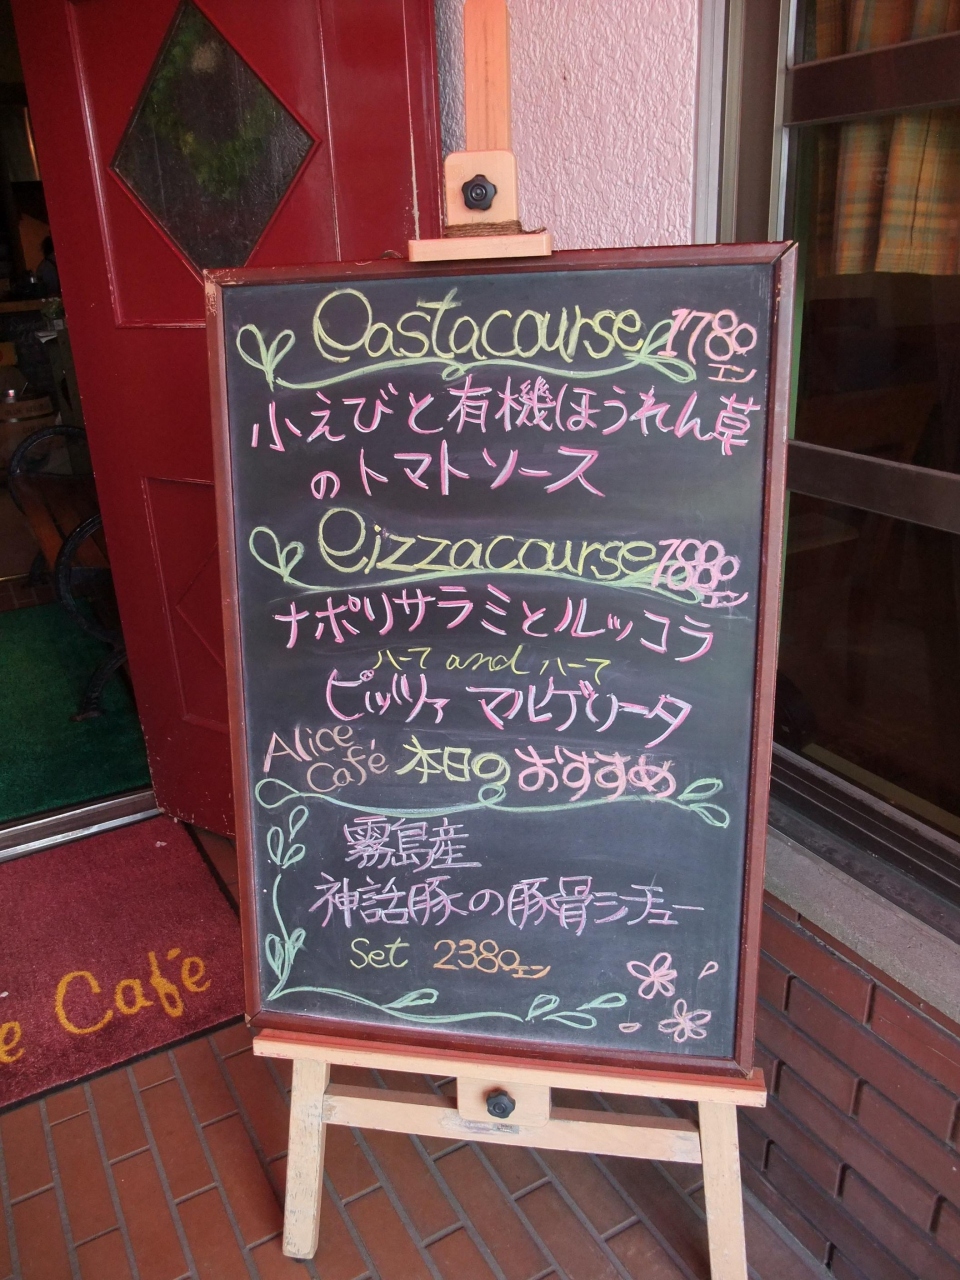 Pastacourse 1780エン
小えびと有機ほうれん草
のトマトソース
Pizzacourse 1880エン
ナポリサラミとルッコラ
ハーフ and ハーフ
ピッツァ マルゲリータ
Alice Café 本日のおすすめ
霧島産
神話豚の豚骨シチュー
Set 2380エン
e Café